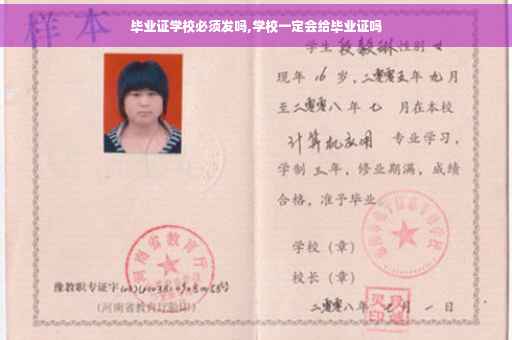 毕业证学校必须发吗,学校一定会给毕业证吗
样本
学生 段毅琳 性别 女
现年 16 岁，二零零五年 九月
至二零零八年 七 月在本校
计算机应用 专业学习，
学制 三年，修业期满，成绩
合格，准予毕业
学校（章）
校长（章）
二零零八年 七 月 一 日
河南省教育厅
豫教职专证字
（河南省教育厅验印）